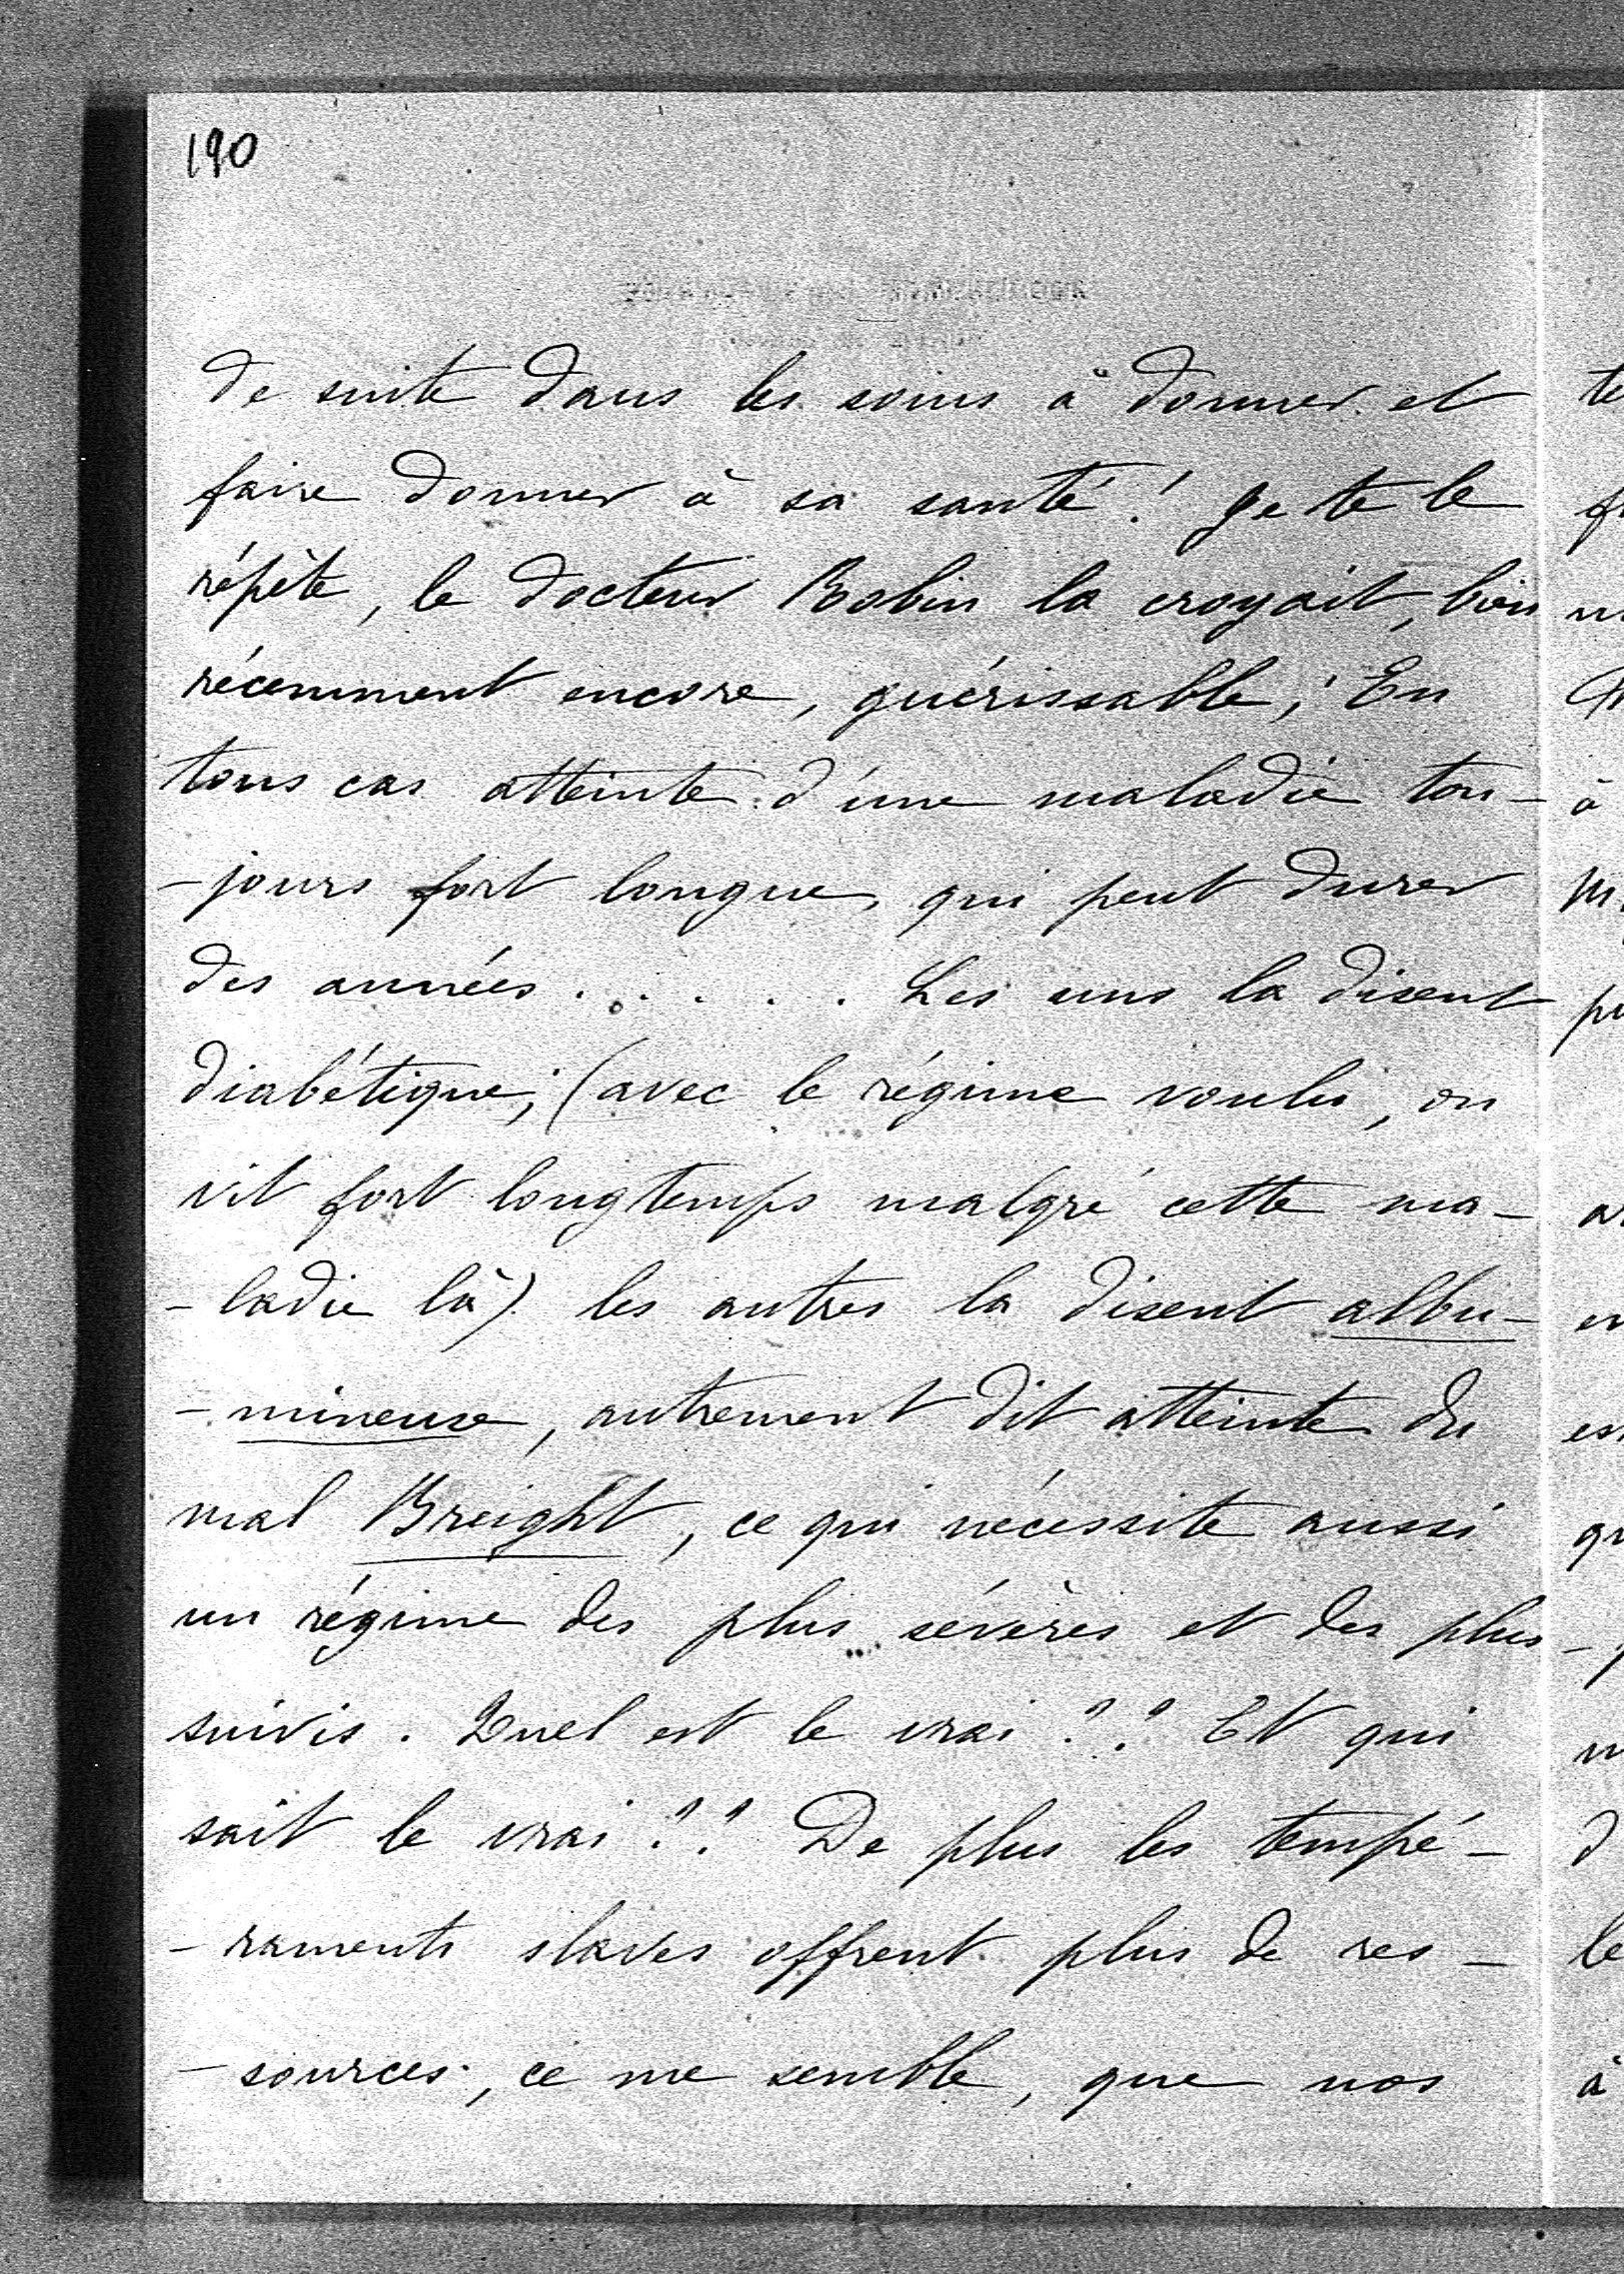 190
de suite dans les soins à donner et
faire donner à sa santé ! Je te le
répète, le docteur Robin la croyait, bien
récemment encore, guérissable ; En
tous cas atteinte d'une maladie tou-
-jours fort longue, qui peut durer
des années . . . . . . Les uns la disent
diabétique ; (avec le régime voulu, on
vit fort longtemps malgré cette ma-
-ladie là) les autres la disent albu-
-mineuse, autrement dit atteinte du
mal Breight, ce qui nécessite aussi
un régime des plus sévères et des plus
suivis. Quel est le vrai ? ? Et qui
sait le vrai ? ? De plus les tempé-
-raments slaves offrent plus de res-
-sources, ce me semble, que nos